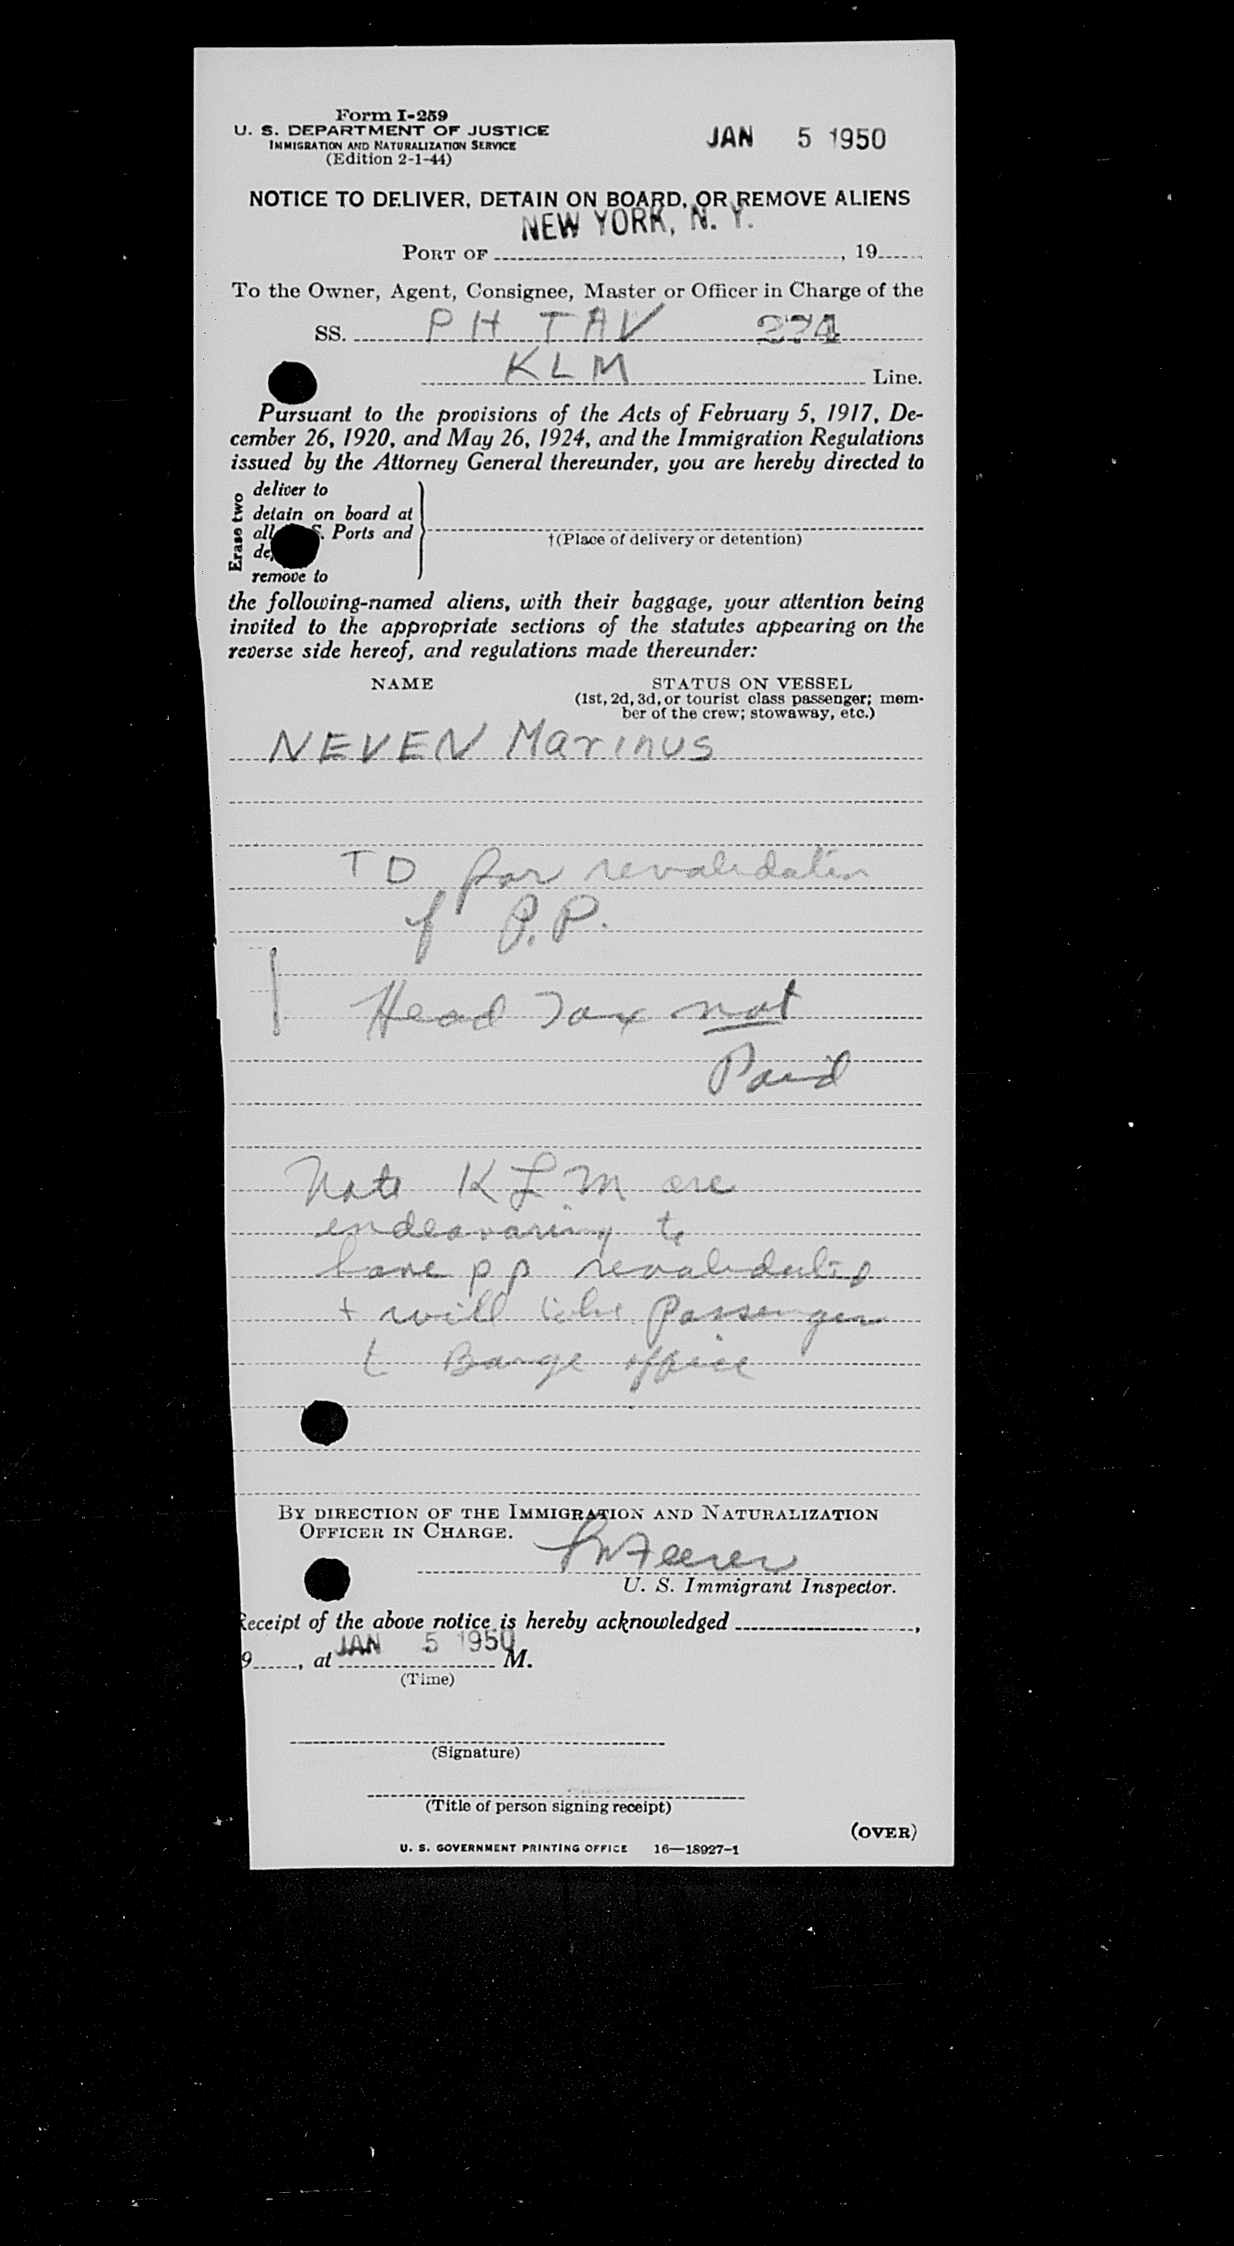 Form I-259
U. S. DEPARTMENT OF JUSTICE
IMMIGRATION AND NATURALIZATION SERVICE
(Edition 2-1-44)
JAN 5 1950
NOTICE TO DELIVER, DETAIN ON BOARD, OR REMOVE ALIENS
NEW YORK, N. Y.
PORT OF , 19
To the Owner, Agent, Consignee, Master or Officer in Charge of the
SS. PH TAV 274
KLM Line.
Pursuant to the provisions of the Acts of February 5, 1917, De-
cember 26, 1920, and May 26, 1924, and the Immigration Regulations
issued by the Attorney General thereunder, you are hereby directed to
Erase two
deliver to
detain on board at
all S. Ports and
†(Place of delivery or detention)
remove to
the following-named aliens, with their baggage, your attention being
invited to the appropriate sections of the statutes appearing on the
reverse side hereof, and regulations made thereunder:
NAME STATUS ON VESSEL
(1st, 2d, 3d, or tourist class passenger; mem-
ber of the crew; stowaway, etc.)
NEVEN Marinus
TD for revalidation
of P.P.
Head Tax not
Paid
Note KLM are
endeavoring to
have pp revalidated
+ will take Passenger
to Barge office
BY DIRECTION OF THE IMMIGRATION AND NATURALIZATION
OFFICER IN CHARGE.
U. S. Immigrant Inspector.
Receipt of the above notice is hereby acknowledged ,
JAN 5 1950
9 , at M.
(Time)
(Signature)
(Title of person signing receipt)
(OVER)
U. S. GOVERNMENT PRINTING OFFICE 16—18927-1